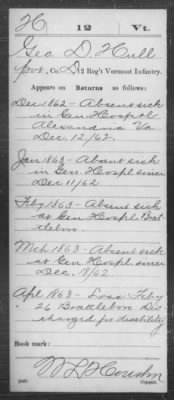 H 12 Vt.
Geo. D. Hull
Pvt., Co. D, 12 Reg't Vermont Infantry.
Appears on Returns as follows:
Dec. 1862 - Absent sick
in Gen. Hospl.
Alexandria Va
Dec. 12/62.
Jan. 1863 - Absent sick
in Gen. Hospl since
Dec. 11/62
Feby 1863 - Absent sick
at Gen. Hospl. Brat
tleboro.
Mch. 1863 - Absent sick
at Gen. Hospl since
Dec. 8/62
Apl. 1863 - Loss Feby
26 Brattleboro Dis
charged for disability
Book mark:
Copyist.